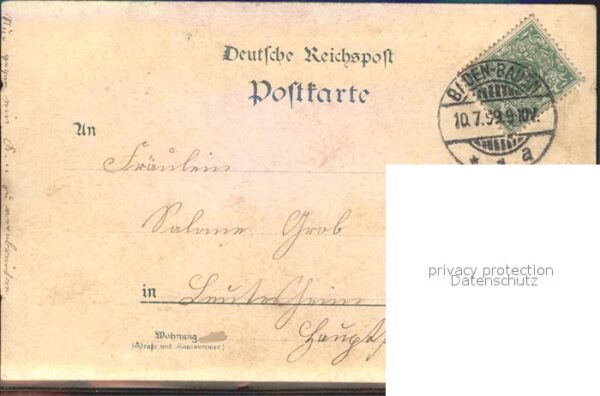 Deutsche Reichspost
Postkarte
BADEN-BADEN
10.7.99.9-10V.
* 1 a
An
Fräulein
Salome Grob
in Leutesheim
Haupt
Wohnung
(Straße und Hausnummer)
privacy protection
Datenschutz